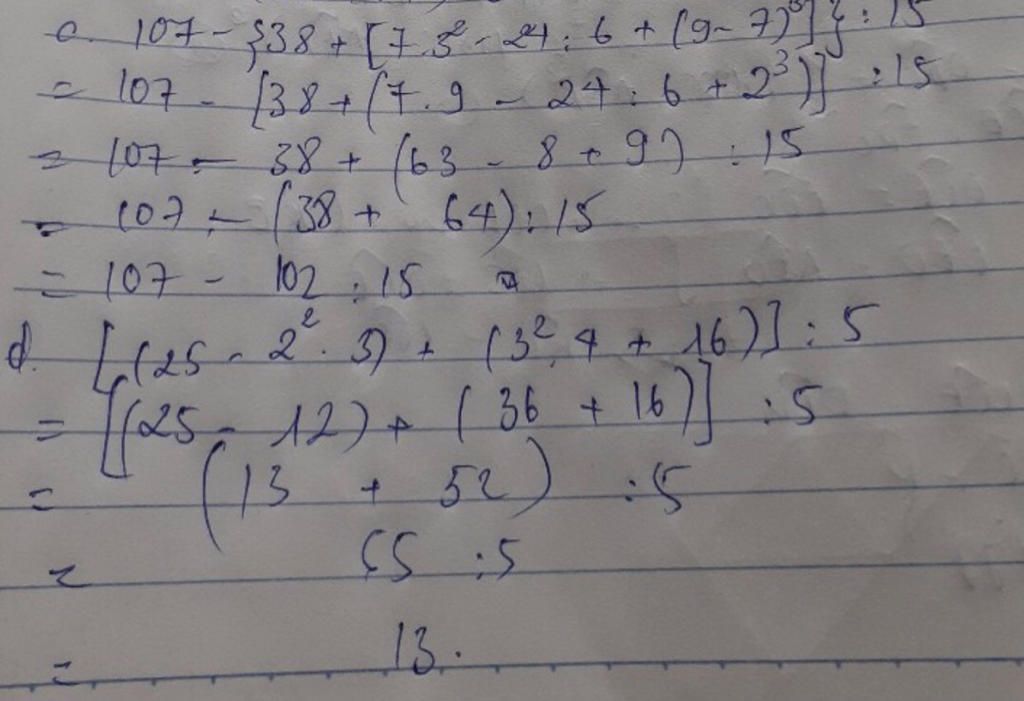 c. 107 - {38 + [7.3² - 24 : 6 + (9 - 7)³]} : 15
= 107 - [38 + (7.9 - 24 : 6 + 2³)] : 15
= 107 - 38 + (63 - 8 + 9) : 15
= 107 - (38 + 64) : 15
= 107 - 102 : 15
d. [(25 - 2² . 3) + (3² . 4 + 16)] : 5
= [(25 - 12) + (36 + 16)] : 5
= (13 + 52) : 5
= 65 : 5
= 13.